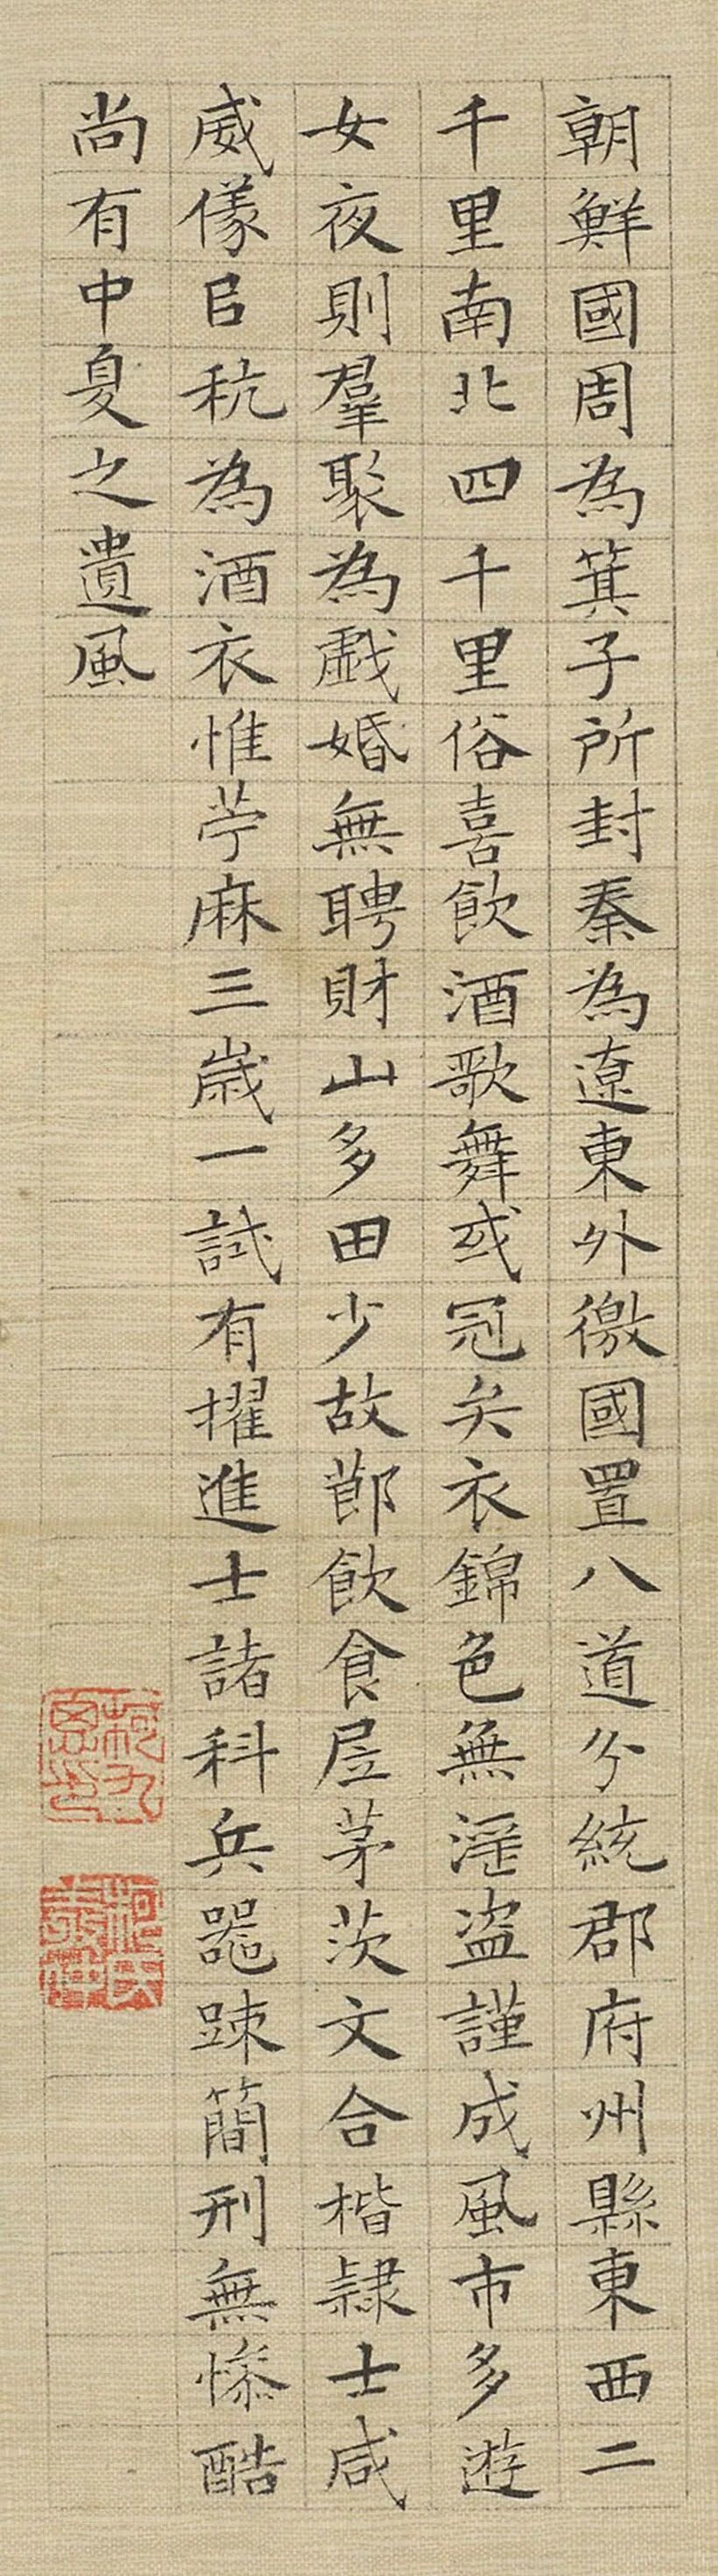 朝鮮國周為箕子所封秦為遼東外徼國置八道分統郡府州縣東西二
千里南北四千里俗喜飲酒歌舞或冠衣錦色無淫盜謹成風市多遊
女夜則羣聚為戲婚無聘財山多田少故節飲食屋茅茨文合楷隸士咸
威儀㠯秔為酒衣惟苧麻三歲一試有擢進士諸科兵器疎簡刑無慘酷
尚有中夏之遺風
柯九思印
柯氏敬仲